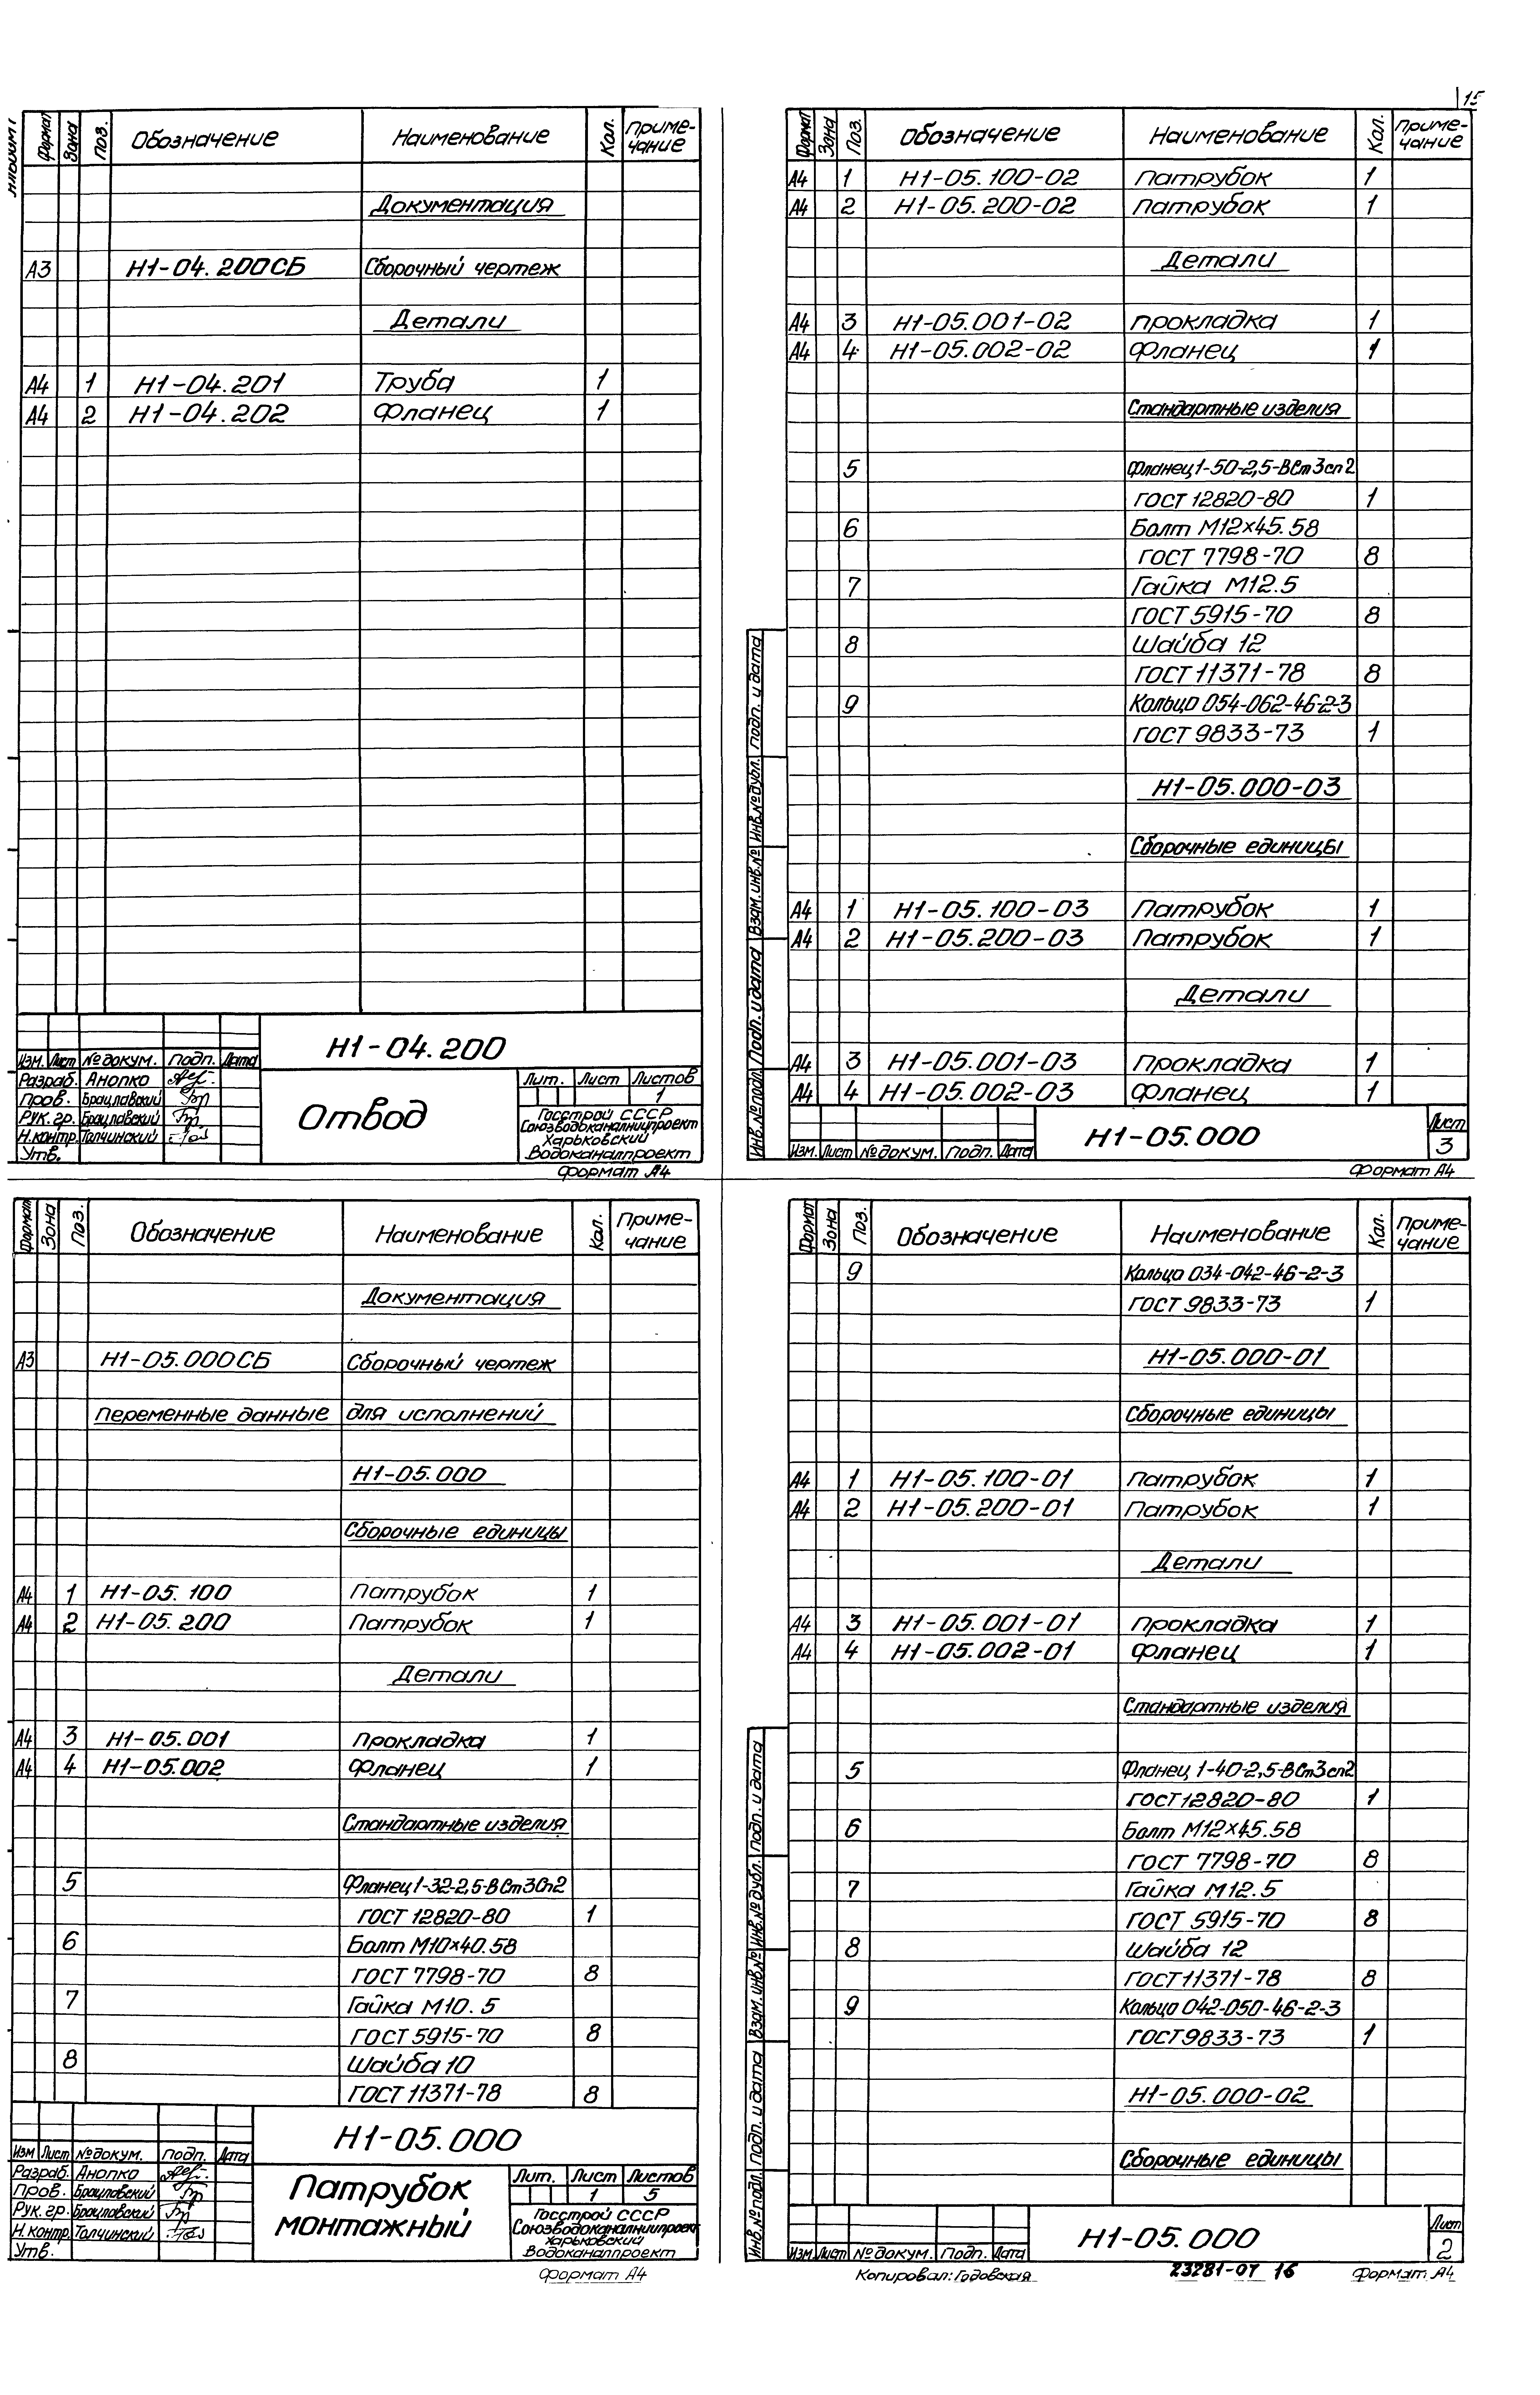 15
Формат Зона Поз. Обозначение Наименование Кол. Приме-
чание
Документация
А3 Н1-04.200СБ Сборочный чертеж
Детали
А4 1 Н1-04.201 Труба 1
А4 2 Н1-04.202 Фланец 1
Н1-04.200
Изм. Лист № докум. Подп. Дата
Разраб. Анопко
Пров. Брацлавский
Рук. гр. Брацлавский
Н.контр. Талчинский
Утв.
Отвод
Лит. Лист Листов
1
Госстрой СССР
Союзводоканалниипроект
Харьковский
Водоканалпроект
Формат А4
Формат Зона Поз. Обозначение Наименование Кол. Приме-
чание
А4 1 Н1-05.100-02 Патрубок 1
А4 2 Н1-05.200-02 Патрубок 1
Детали
А4 3 Н1-05.001-02 Прокладка 1
А4 4 Н1-05.002-02 Фланец 1
Стандартные изделия
5 Фланец 1-50-2,5-ВСт3сп2
ГОСТ 12820-80 1
6 Болт М12×45.58
ГОСТ 7798-70 8
7 Гайка М12.5
ГОСТ 5915-70 8
8 Шайба 12
ГОСТ 11371-78 8
9 Кольцо 054-062-46-2-3
ГОСТ 9833-73 1
Н1-05.000-03
Сборочные единицы
А4 1 Н1-05.100-03 Патрубок 1
А4 2 Н1-05.200-03 Патрубок 1
Детали
А4 3 Н1-05.001-03 Прокладка 1
А4 4 Н1-05.002-03 Фланец 1
Инв.№ подл. Подп. и дата Взам. инв.№ Инв.№ дубл. Подп. и дата
Изм. Лист № докум. Подп. Дата
Н1-05.000
Лист
3
Формат А4
Формат Зона Поз. Обозначение Наименование Кол. Приме-
чание
Документация
А3 Н1-05.000СБ Сборочный чертеж
Переменные данные для исполнений
Н1-05.000
Сборочные единицы
А4 1 Н1-05.100 Патрубок 1
А4 2 Н1-05.200 Патрубок 1
Детали
А4 3 Н1-05.001 Прокладка 1
А4 4 Н1-05.002 Фланец 1
Стандартные изделия
5 Фланец 1-32-2,5-ВСт3Сп2
ГОСТ 12820-80 1
6 Болт М10×40.58
ГОСТ 7798-70 8
7 Гайка М10.5
ГОСТ 5915-70 8
8 Шайба 10
ГОСТ 11371-78 8
Н1-05.000
Изм Лист № докум. Подп. Дата
Разраб. Анопко
Пров. Брацлавский
Рук. гр. Брацлавский
Н.контр. Талчинский
Утв.
Патрубок
монтажный
Лит. Лист Листов
1 5
Госстрой СССР
Союзводоканалниипроект
Харьковский
Водоканалпроект
Формат А4
Формат Зона Поз. Обозначение Наименование Кол. Приме-
чание
9 Кольцо 034-042-46-2-3
ГОСТ 9833-73 1
Н1-05.000-01
Сборочные единицы
А4 1 Н1-05.100-01 Патрубок 1
А4 2 Н1-05.200-01 Патрубок 1
Детали
А4 3 Н1-05.001-01 Прокладка 1
А4 4 Н1-05.002-01 Фланец 1
Стандартные изделия
5 Фланец 1-40-2,5-ВСт3сп2
ГОСТ 12820-80 1
6 Болт М12×45.58
ГОСТ 7798-70 8
7 Гайка М12.5
ГОСТ 5915-70 8
8 Шайба 12
ГОСТ 11371-78 8
9 Кольцо 042-050-46-2-3
ГОСТ 9833-73 1
Н1-05.000-02
Сборочные единицы
Инв.№ подл. Подп. и дата Взам. инв.№ Инв.№ дубл. Подп. и дата
Изм. Лист № докум. Подп. Дата
Н1-05.000
Лист
2
Копировал: Годовская 23281-07 16 Формат А4